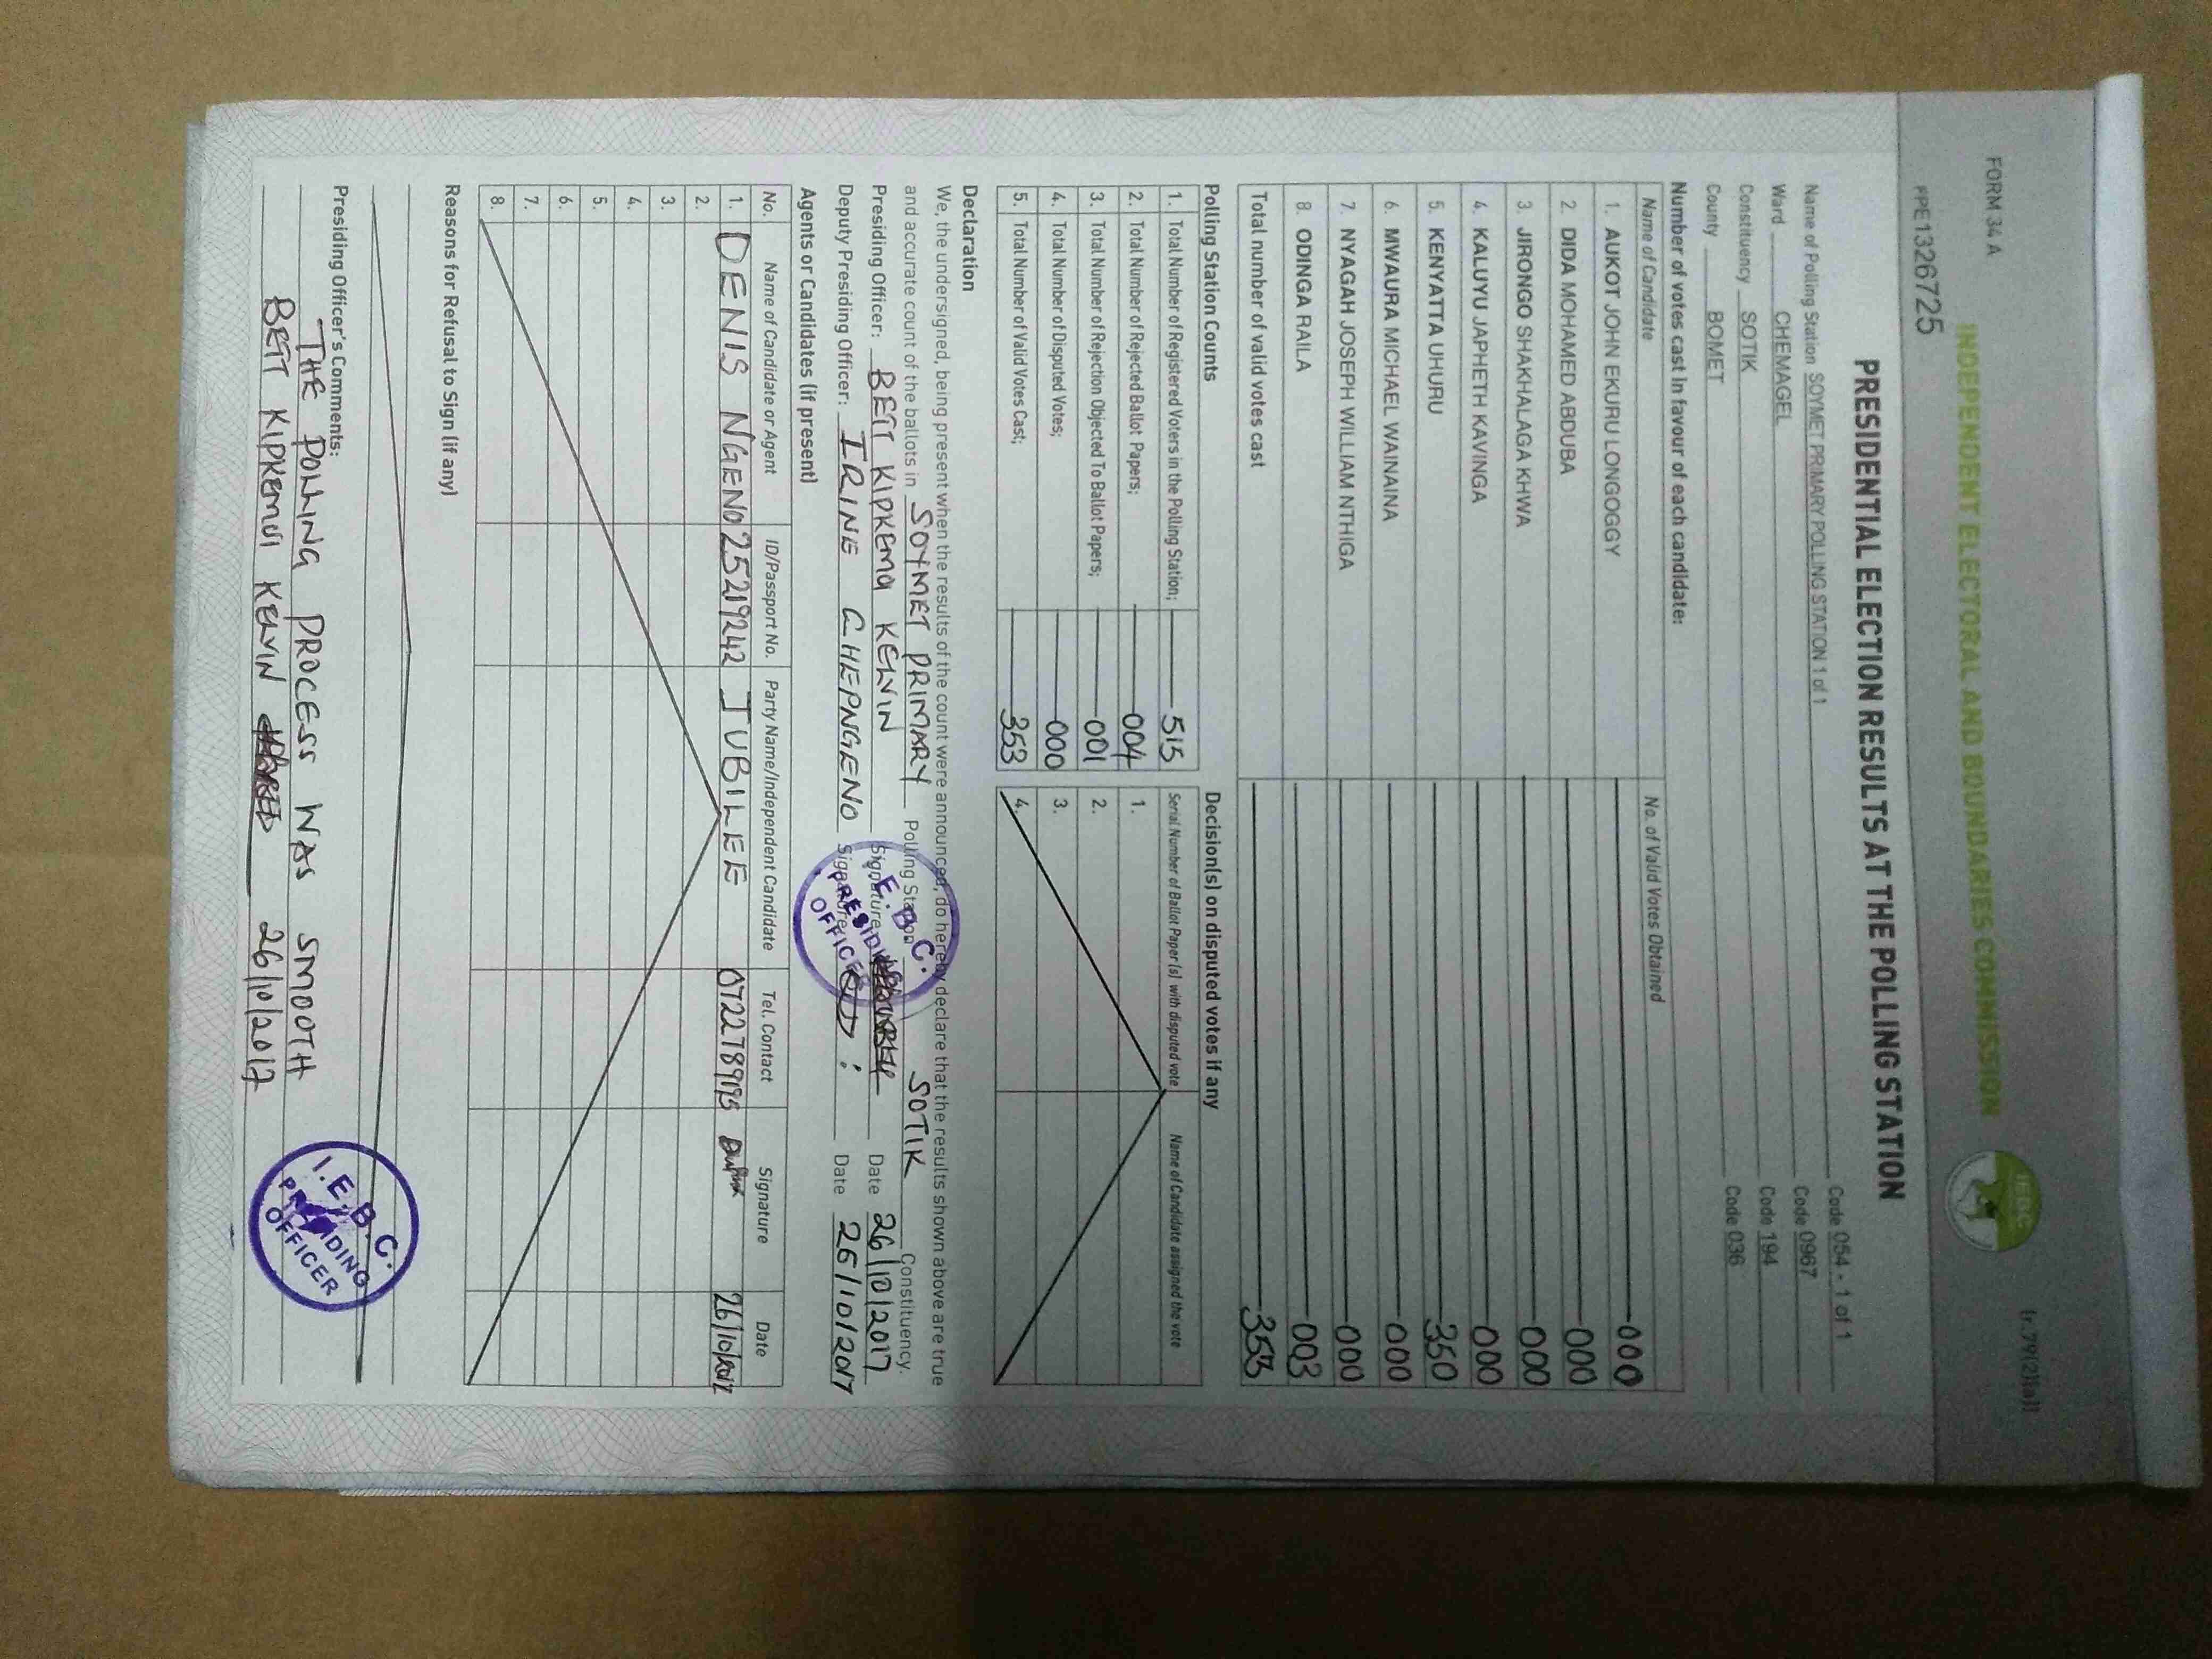 FORM 34 A
(r.79(2)(a))
INDEPENDENT ELECTORAL AND BOUNDARIES COMMISSION
IEBC
PPE1326725
PRESIDENTIAL ELECTION RESULTS AT THE POLLING STATION
Name of Polling Station SOYMET PRIMARY POLLING STATION 1 of 1 Code 054 - 1 of 1
Ward CHEMAGEL Code 0967
Constituency SOTIK Code 194
County BOMET Code 036
Number of votes cast in favour of each candidate:
Name of Candidate No. of Valid Votes Obtained
1. AUKOT JOHN EKURU LONGOGGY 000
2. DIDA MOHAMED ABDUBA 000
3. JIRONGO SHAKHALAGA KHWA 000
4. KALUYU JAPHETH KAVINGA 000
5. KENYATTA UHURU 350
6. MWAURA MICHAEL WAINAINA 000
7. NYAGAH JOSEPH WILLIAM NTHIGA 000
8. ODINGA RAILA 003
Total number of valid votes cast 353
Polling Station Counts
1. Total Number of Registered Voters in the Polling Station; 515
2. Total Number of Rejected Ballot Papers; 004
3. Total Number of Rejection Objected To Ballot Papers; 001
4. Total Number of Disputed Votes; 000
5. Total Number of Valid Votes Cast; 353
Decision(s) on disputed votes if any
Serial Number of Ballot Paper (s) with disputed vote Name of Candidate assigned the vote
1.
2.
3.
4.
Declaration
We, the undersigned, being present when the results of the count were announced, do hereby declare that the results shown above are true
and accurate count of the ballots in SOYMET PRIMARY Polling Station SOTIK Constituency.
Presiding Officer: BETT KIPKEMOI KELVIN Signature Date 26/10/2017
Deputy Presiding Officer: IRINE CHEPNGENO Signature Date 26/10/2017
I.E.B.C. PRESIDING OFFICER
Agents or Candidates (if present)
No. Name of Candidate or Agent ID/Passport No. Party Name/Independent Candidate Tel. Contact Signature Date
1. DENIS NGENO 25219242 JUBILEE 26/10/2017
2.
3.
4.
5.
6.
7.
8.
Reasons for Refusal to Sign (if any)
Presiding Officer's Comments:
THE POLLING PROCESS WAS SMOOTH
BETT KIPKEMOI KELVIN 26/10/2017
I.E.B.C. PRESIDING OFFICER